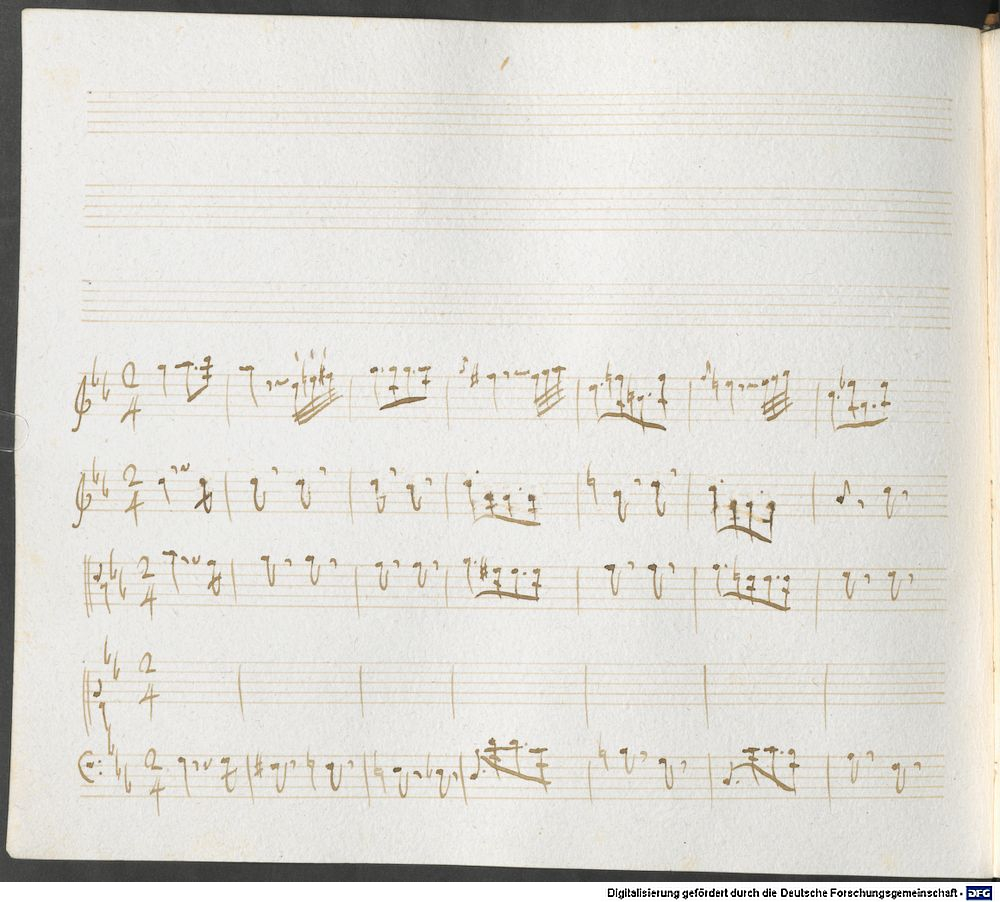 2
4
2
4
2
4
2
4
2
4
Digitalisierung gefördert durch die Deutsche Forschungsgemeinschaft - DFG